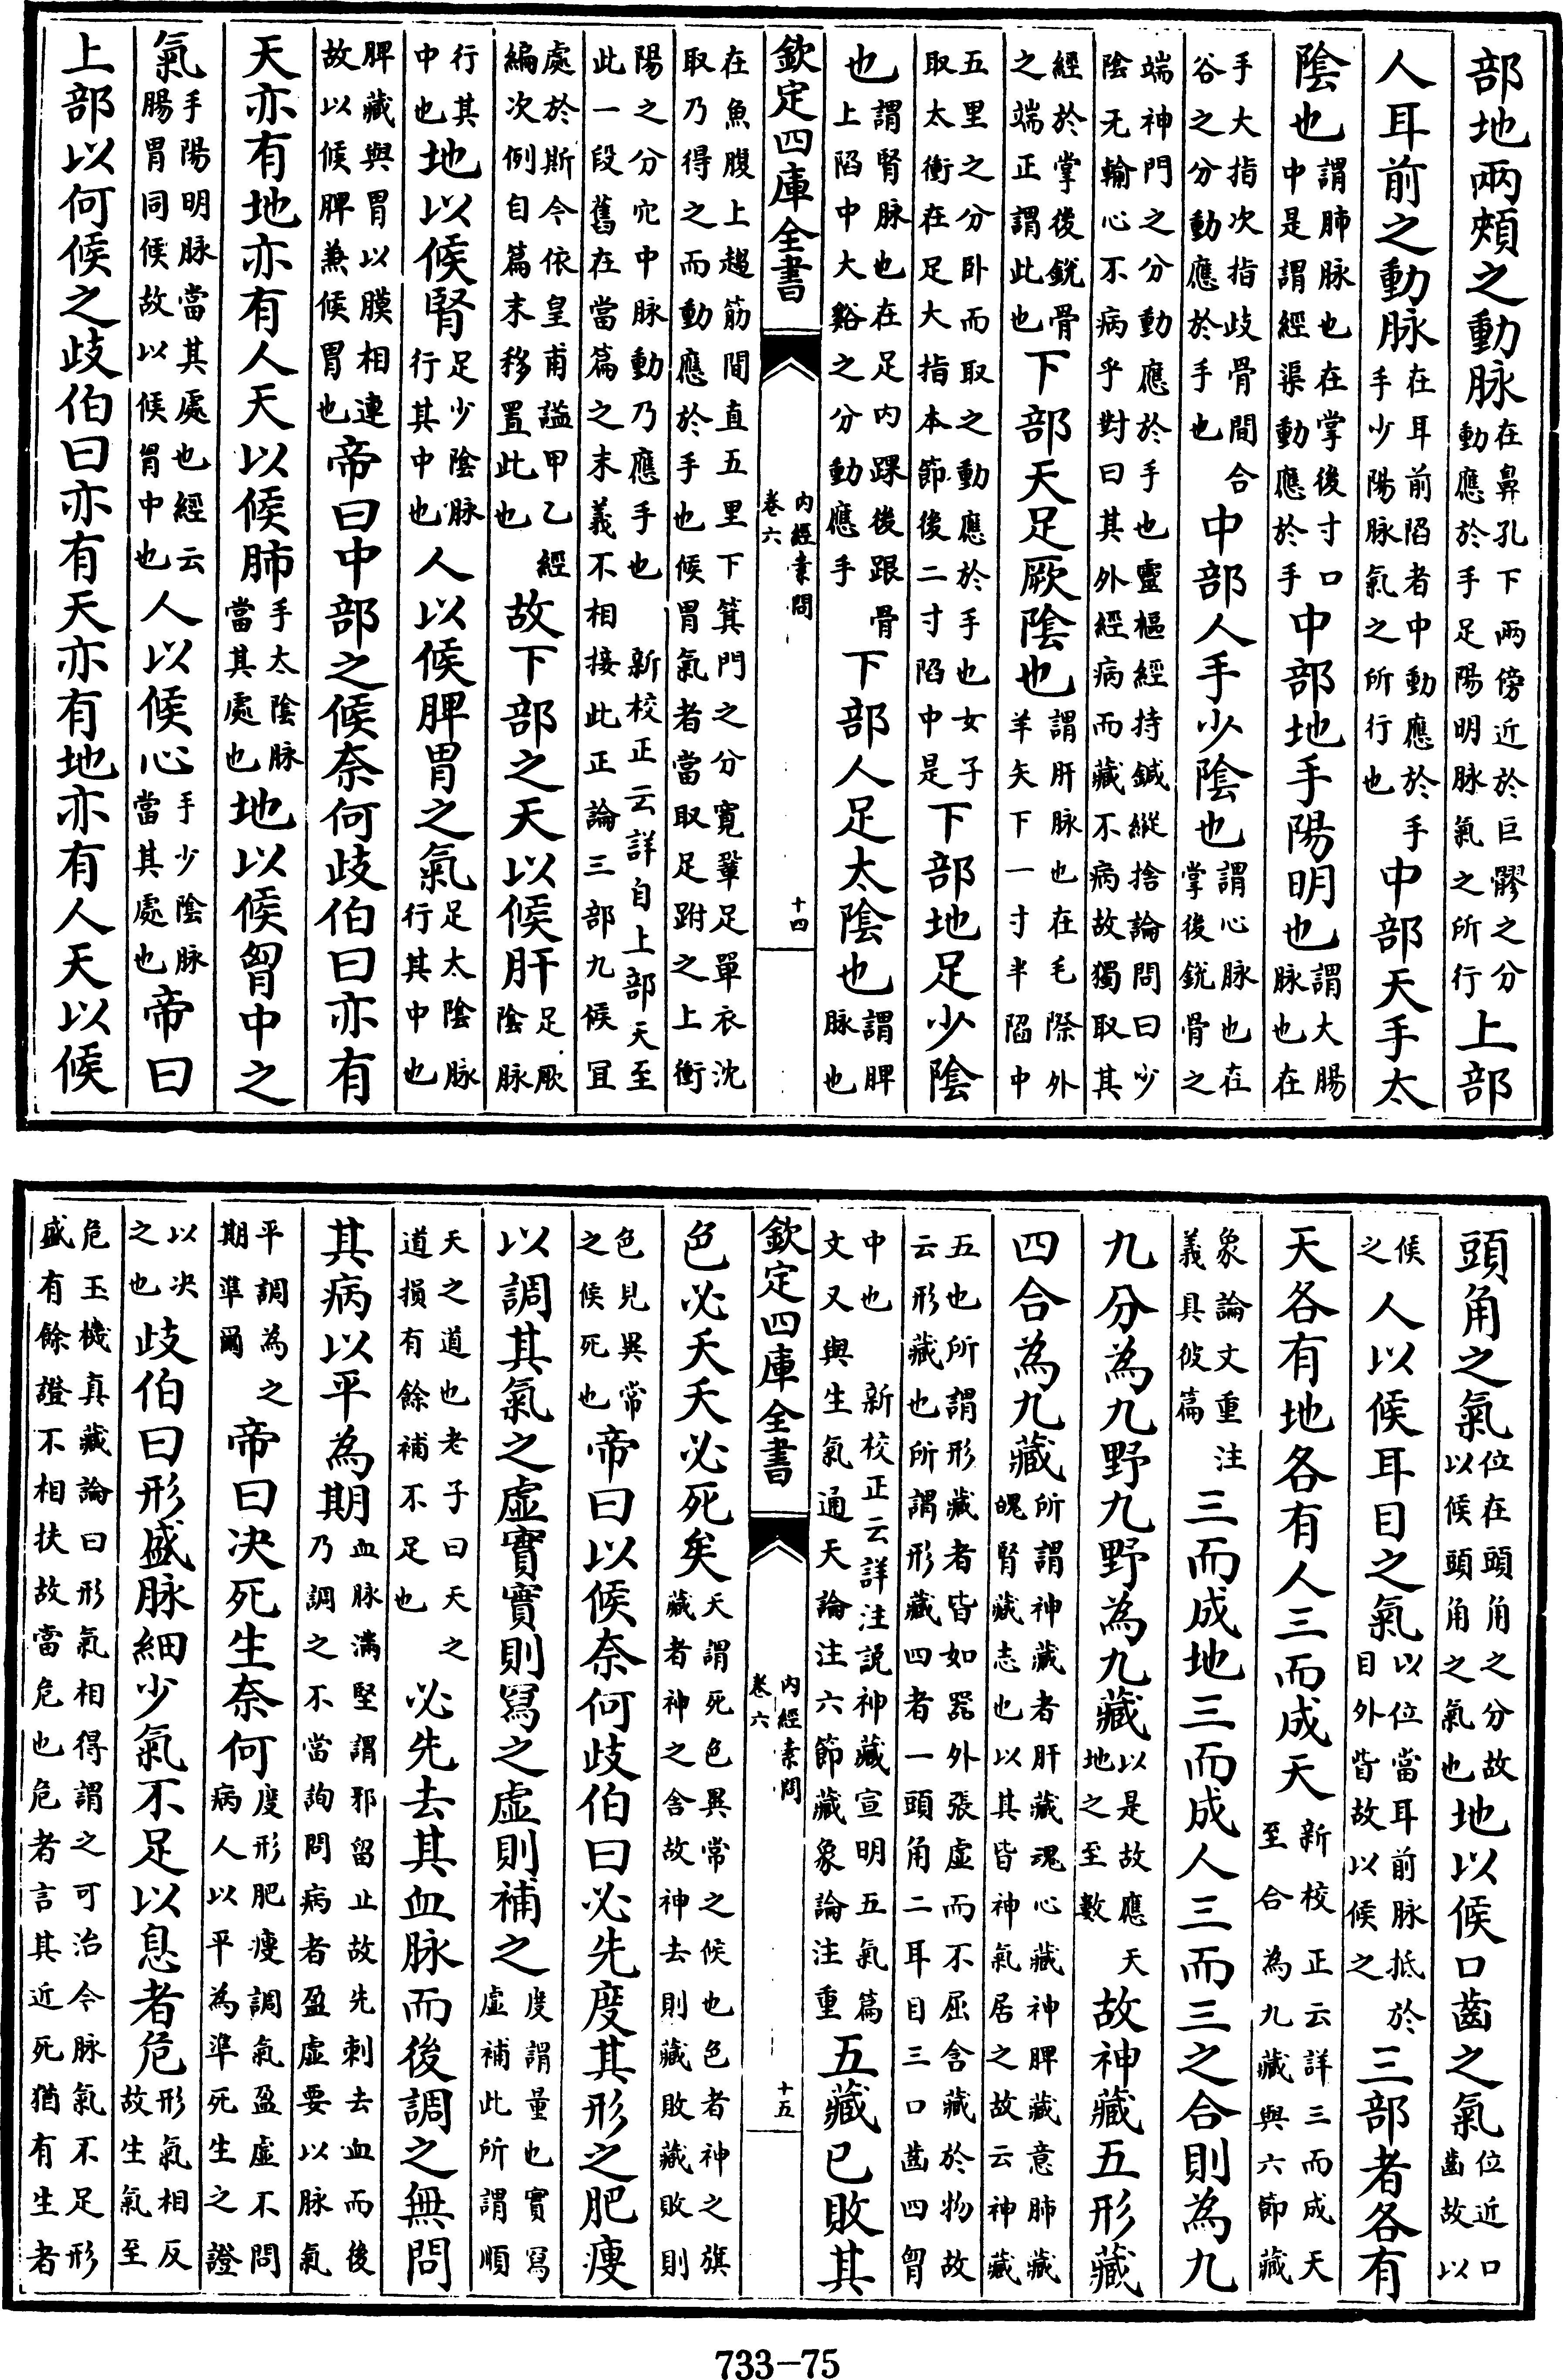 部地兩頰之動脉在鼻孔下兩傍近於巨髎之分動應於手足陽明脉氣之所行上部
人耳前之動脉在耳前陷者中動應於手手少陽脉氣之所行也中部天手太
陰也謂肺脉也在掌後寸口中是謂經渠動應於手中部地手陽明也謂大腸脉也在
手大指次指歧骨間合谷之分動應於手也中部人手少陰也謂心脉也在掌後銳骨之
端神門之分動應於手也靈樞經持鍼縱捨論問曰少陰无輸心不病乎對曰其外經病而藏不病故獨取其
經於掌後銳骨之端正謂此也下部天足厥陰也謂肝脉也在毛際外羊矢下一寸半陷中
五里之分卧而取之動應於手也女子取太衝在足大指本節後二寸陷中是下部地足少陰
也謂腎脉也在足内踝後跟骨上陷中大谿之分動應手下部人足太陰也謂脾脉也
欽定四庫全書 内經素問 卷六 十四
在魚腹上趨筋間直五里下箕門之分寛鞏足單衣沈取乃得之而動應於手也候胃氣者當取足跗之上衝
陽之分穴中脉動乃應手也 新校正云詳自上部天至此一段舊在當篇之末義不相接此正論三部九候冝
處於斯今依皇甫謐甲乙經編次例自篇末移置此也故下部之天以候肝足厥陰脉
行其中也地以候腎足少陰脉行其中也人以候脾胃之氣足太陰脉行其中也
脾藏與胃以膜相連故以候脾兼候胃也帝曰中部之候奈何歧伯曰亦有
天亦有地亦有人天以候肺手太陰脉當其處也地以候胷中之
氣手陽明脉當其處也經云腸胃同候故以候胷中也人以候心手少陰脉當其處也帝曰
上部以何候之歧伯曰亦有天亦有地亦有人天以候
頭角之氣位在頭角之分故以候頭角之氣也地以候口齒之氣位近口齒故以
候之人以候耳目之氣以位當耳前脉抵於目外眥故以候之三部者各有
天各有地各有人三而成天新校正云詳三而成天至合為九藏與六節藏
象論文重注義具彼篇三而成地三而成人三而三之合則為九
九分為九野九野為九藏以是故應天地之至數故神藏五形藏
四合為九藏所謂神藏者肝藏魂心藏神脾藏意肺藏魄腎藏志也以其皆神氣居之故云神藏
五也所謂形藏者皆如器外張虛而不屈含藏於物故云形藏也所謂形藏四者一頭角二耳目三口齒四胷
中也 新校正云詳注說神藏宣明五氣篇文又與生氣通天論注六節藏象論注重五藏已敗其
欽定四庫全書 内經素問 卷六 十五
色必夭夭必死矣夭謂死色異常之候也色者神之旗藏者神之舍故神去則藏敗藏敗則
色見異常之候死也帝曰以候奈何歧伯曰必先度其形之肥瘦
以調其氣之虛實實則寫之虛則補之度謂量也實寫虛補此所謂順
天之道也老子曰天之道損有餘補不足也必先去其血脉而後調之無問
其病以平為期血脉滿堅謂邪留止故先刺去血而後乃調之不當詢問病者盈虛要以脉氣
平調為之期準爾帝曰決死生奈何度形肥瘦調氣盈虛不問病人以平為準死生之證
以决之也歧伯曰形盛脉細少氣不足以息者危形氣相反故生氣至
危玉機真藏論曰形氣相得謂之可治今脉氣不足形盛有餘證不相扶故當危也危者言其近死猶有生者
733-75